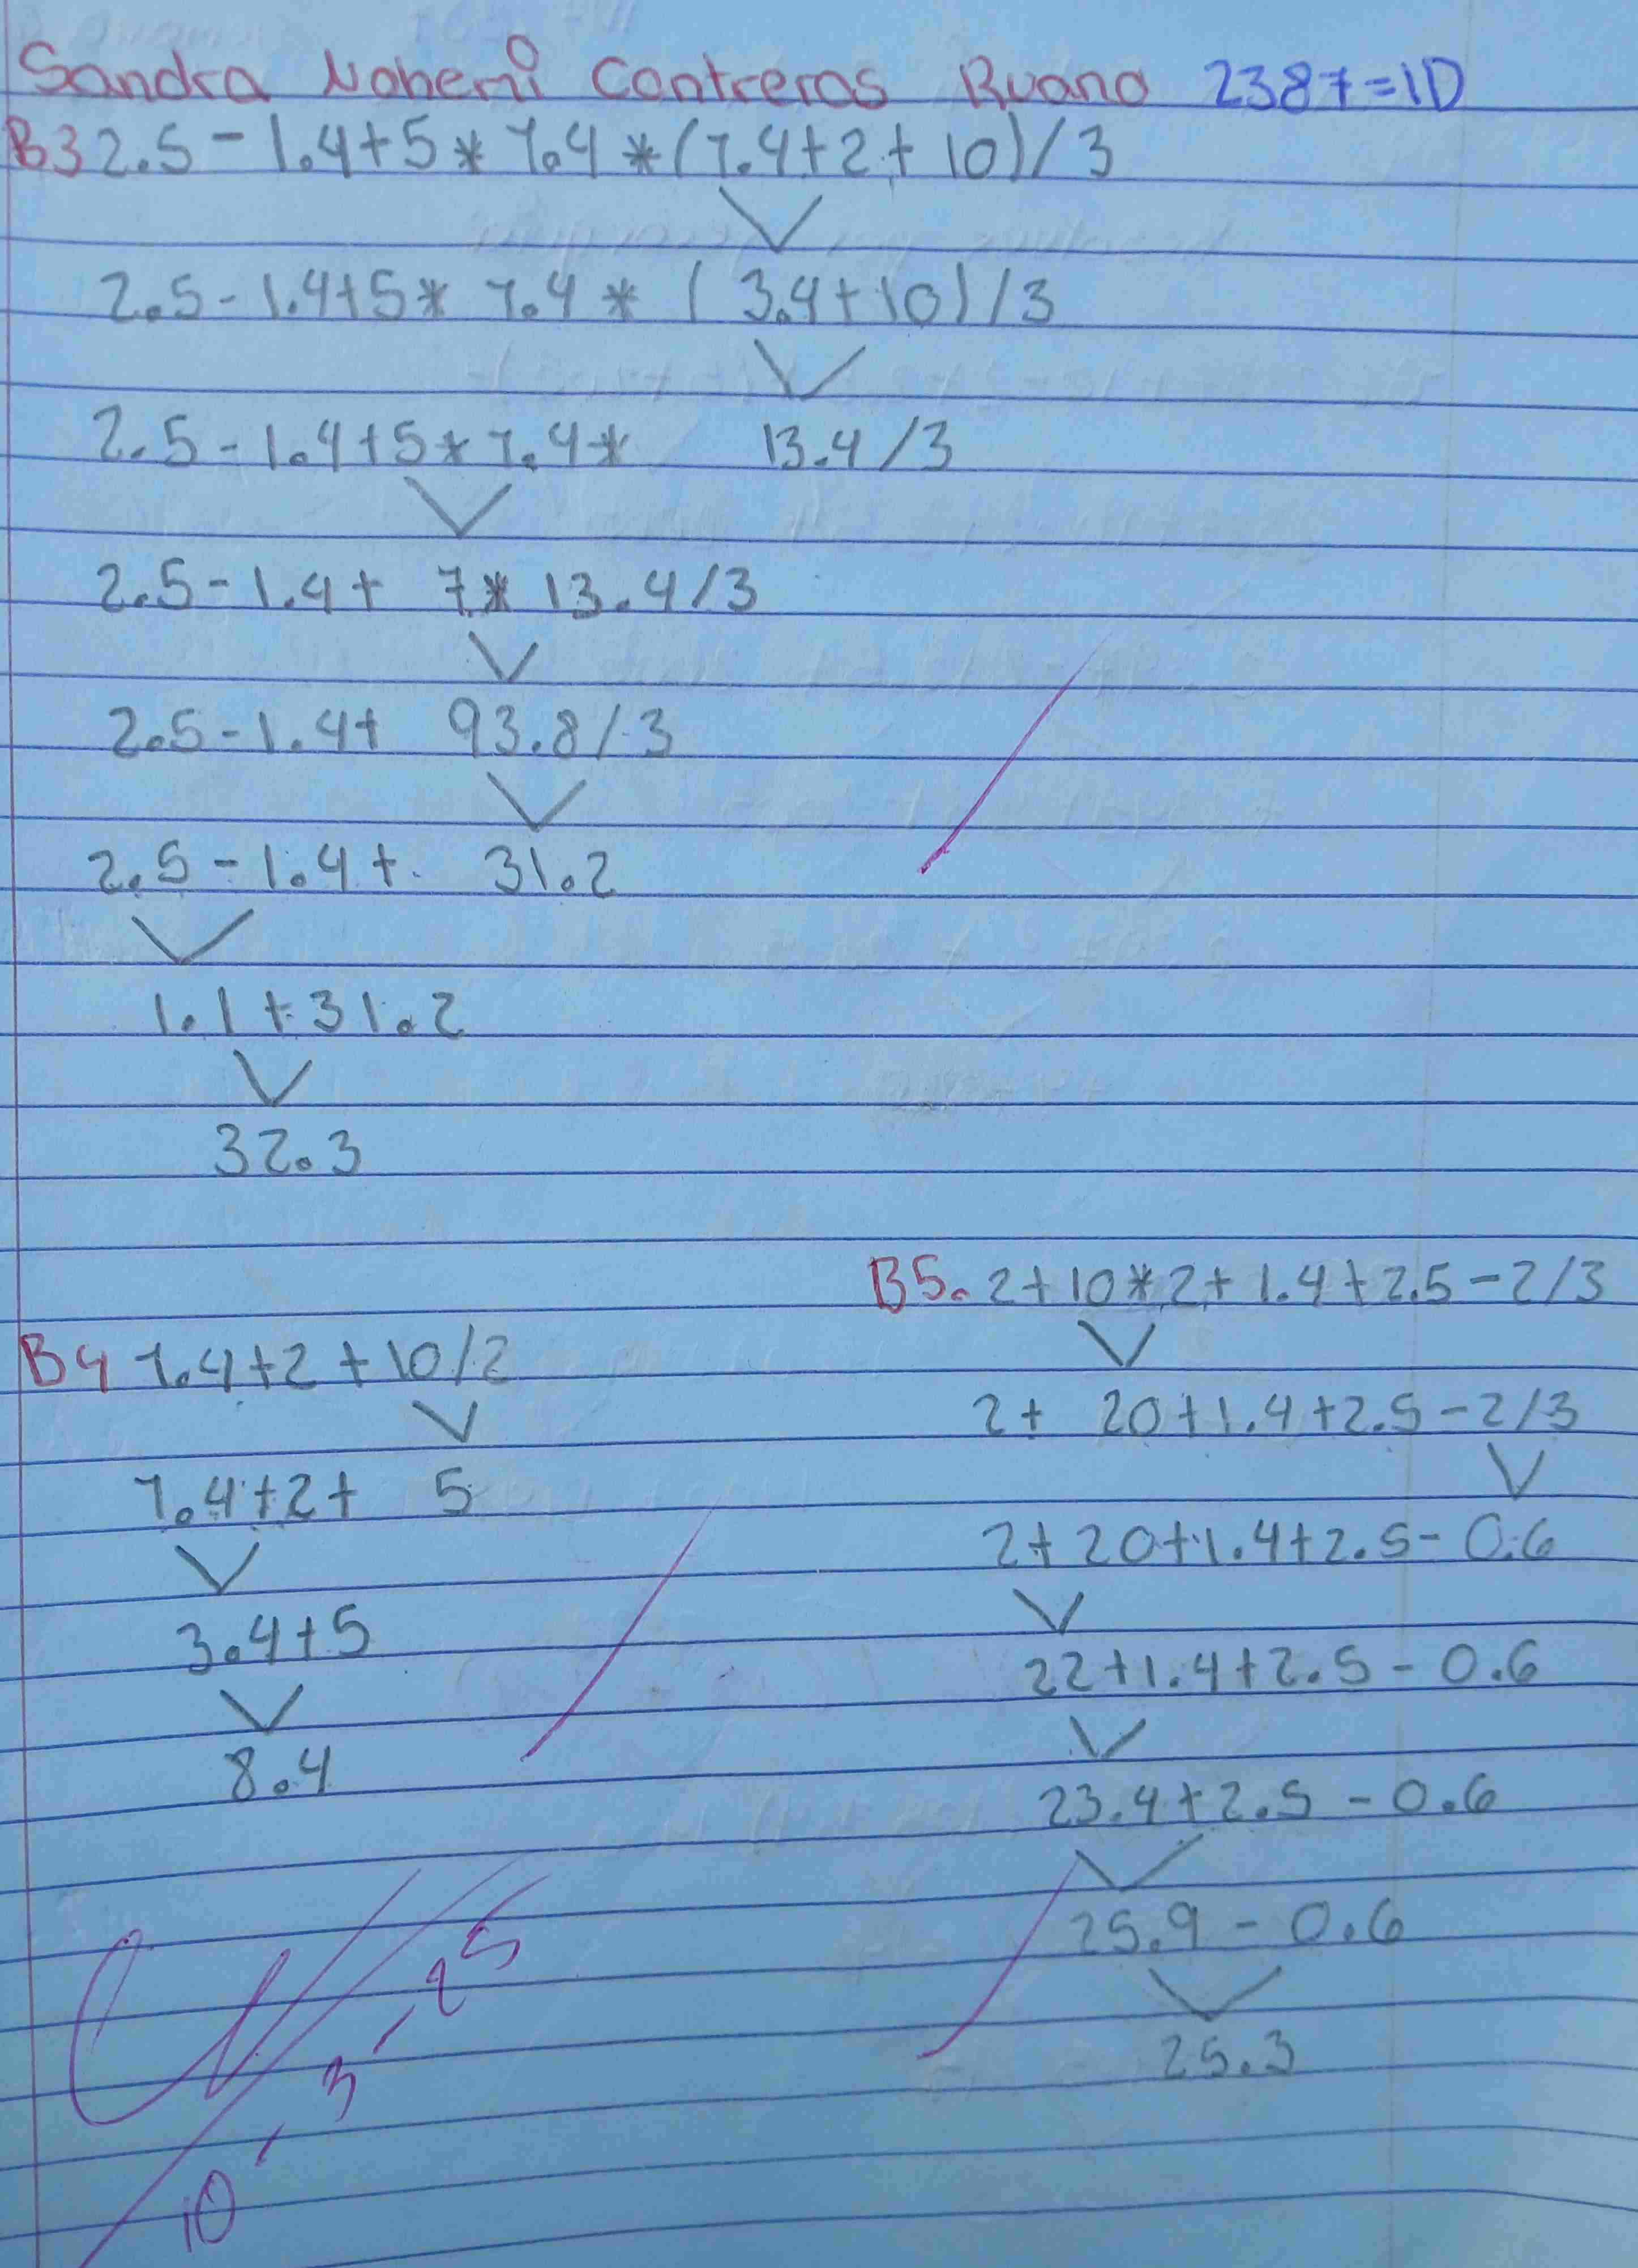 Sandra Nohemí Contreras Ruano 2387=1D
B3 2.5-1.4+5*1.4*(1.4+2+10)/3
2.5-1.4+5*1.4*(3.4+10)/3
2.5-1.4+5*1.4* 13.4/3
2.5-1.4+ 7*13.4/3
2.5-1.4+ 93.8/3
2.5-1.4+ 31.2
1.1+31.2
32.3
B4 1.4+2+10/2
1.4+2+ 5
3.4+5
8.4
B5. 2+10*2+1.4+2.5-2/3
2+ 20+1.4+2.5-2/3
2+20+1.4+2.5-0.6
22+1.4+2.5-0.6
23.4+2.5-0.6
25.9-0.6
25.3
10/3/25